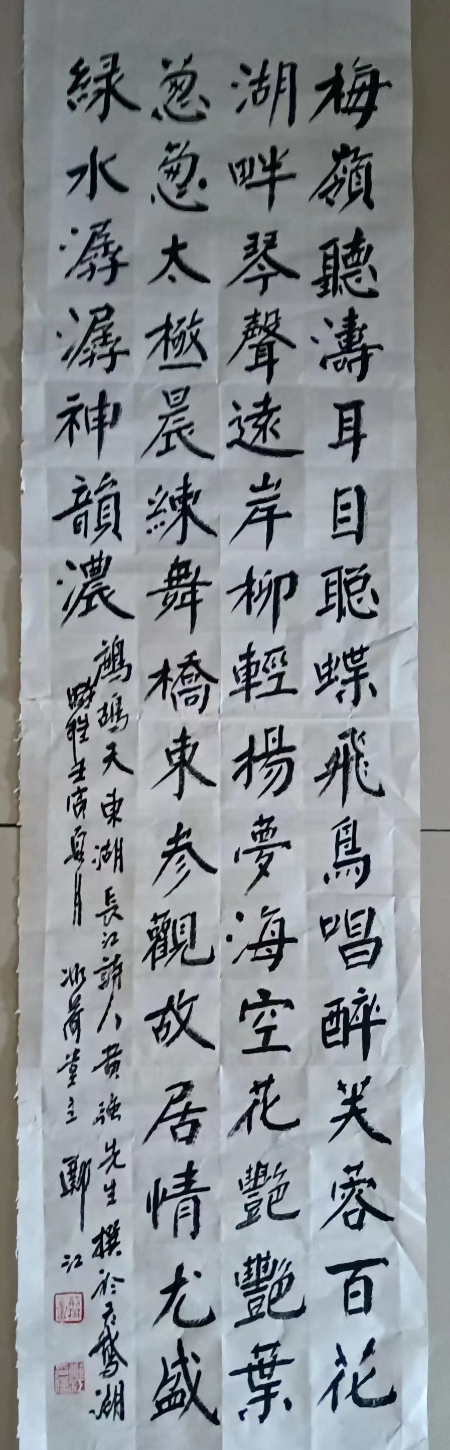 梅嶺聽濤耳目聡蝶飛鳥唱醉芙蓉百花
湖畔琴聲遠岸柳輕楊夢海空花艷艷葉
葱葱太極晨練舞橋東參觀故居情尤盛
緑水潺潺神韻濃
鷓鴣天東湖長江詩人黄強先生撰於天鵝湖
歲在壬寅夏月冰荷堂主鄭江